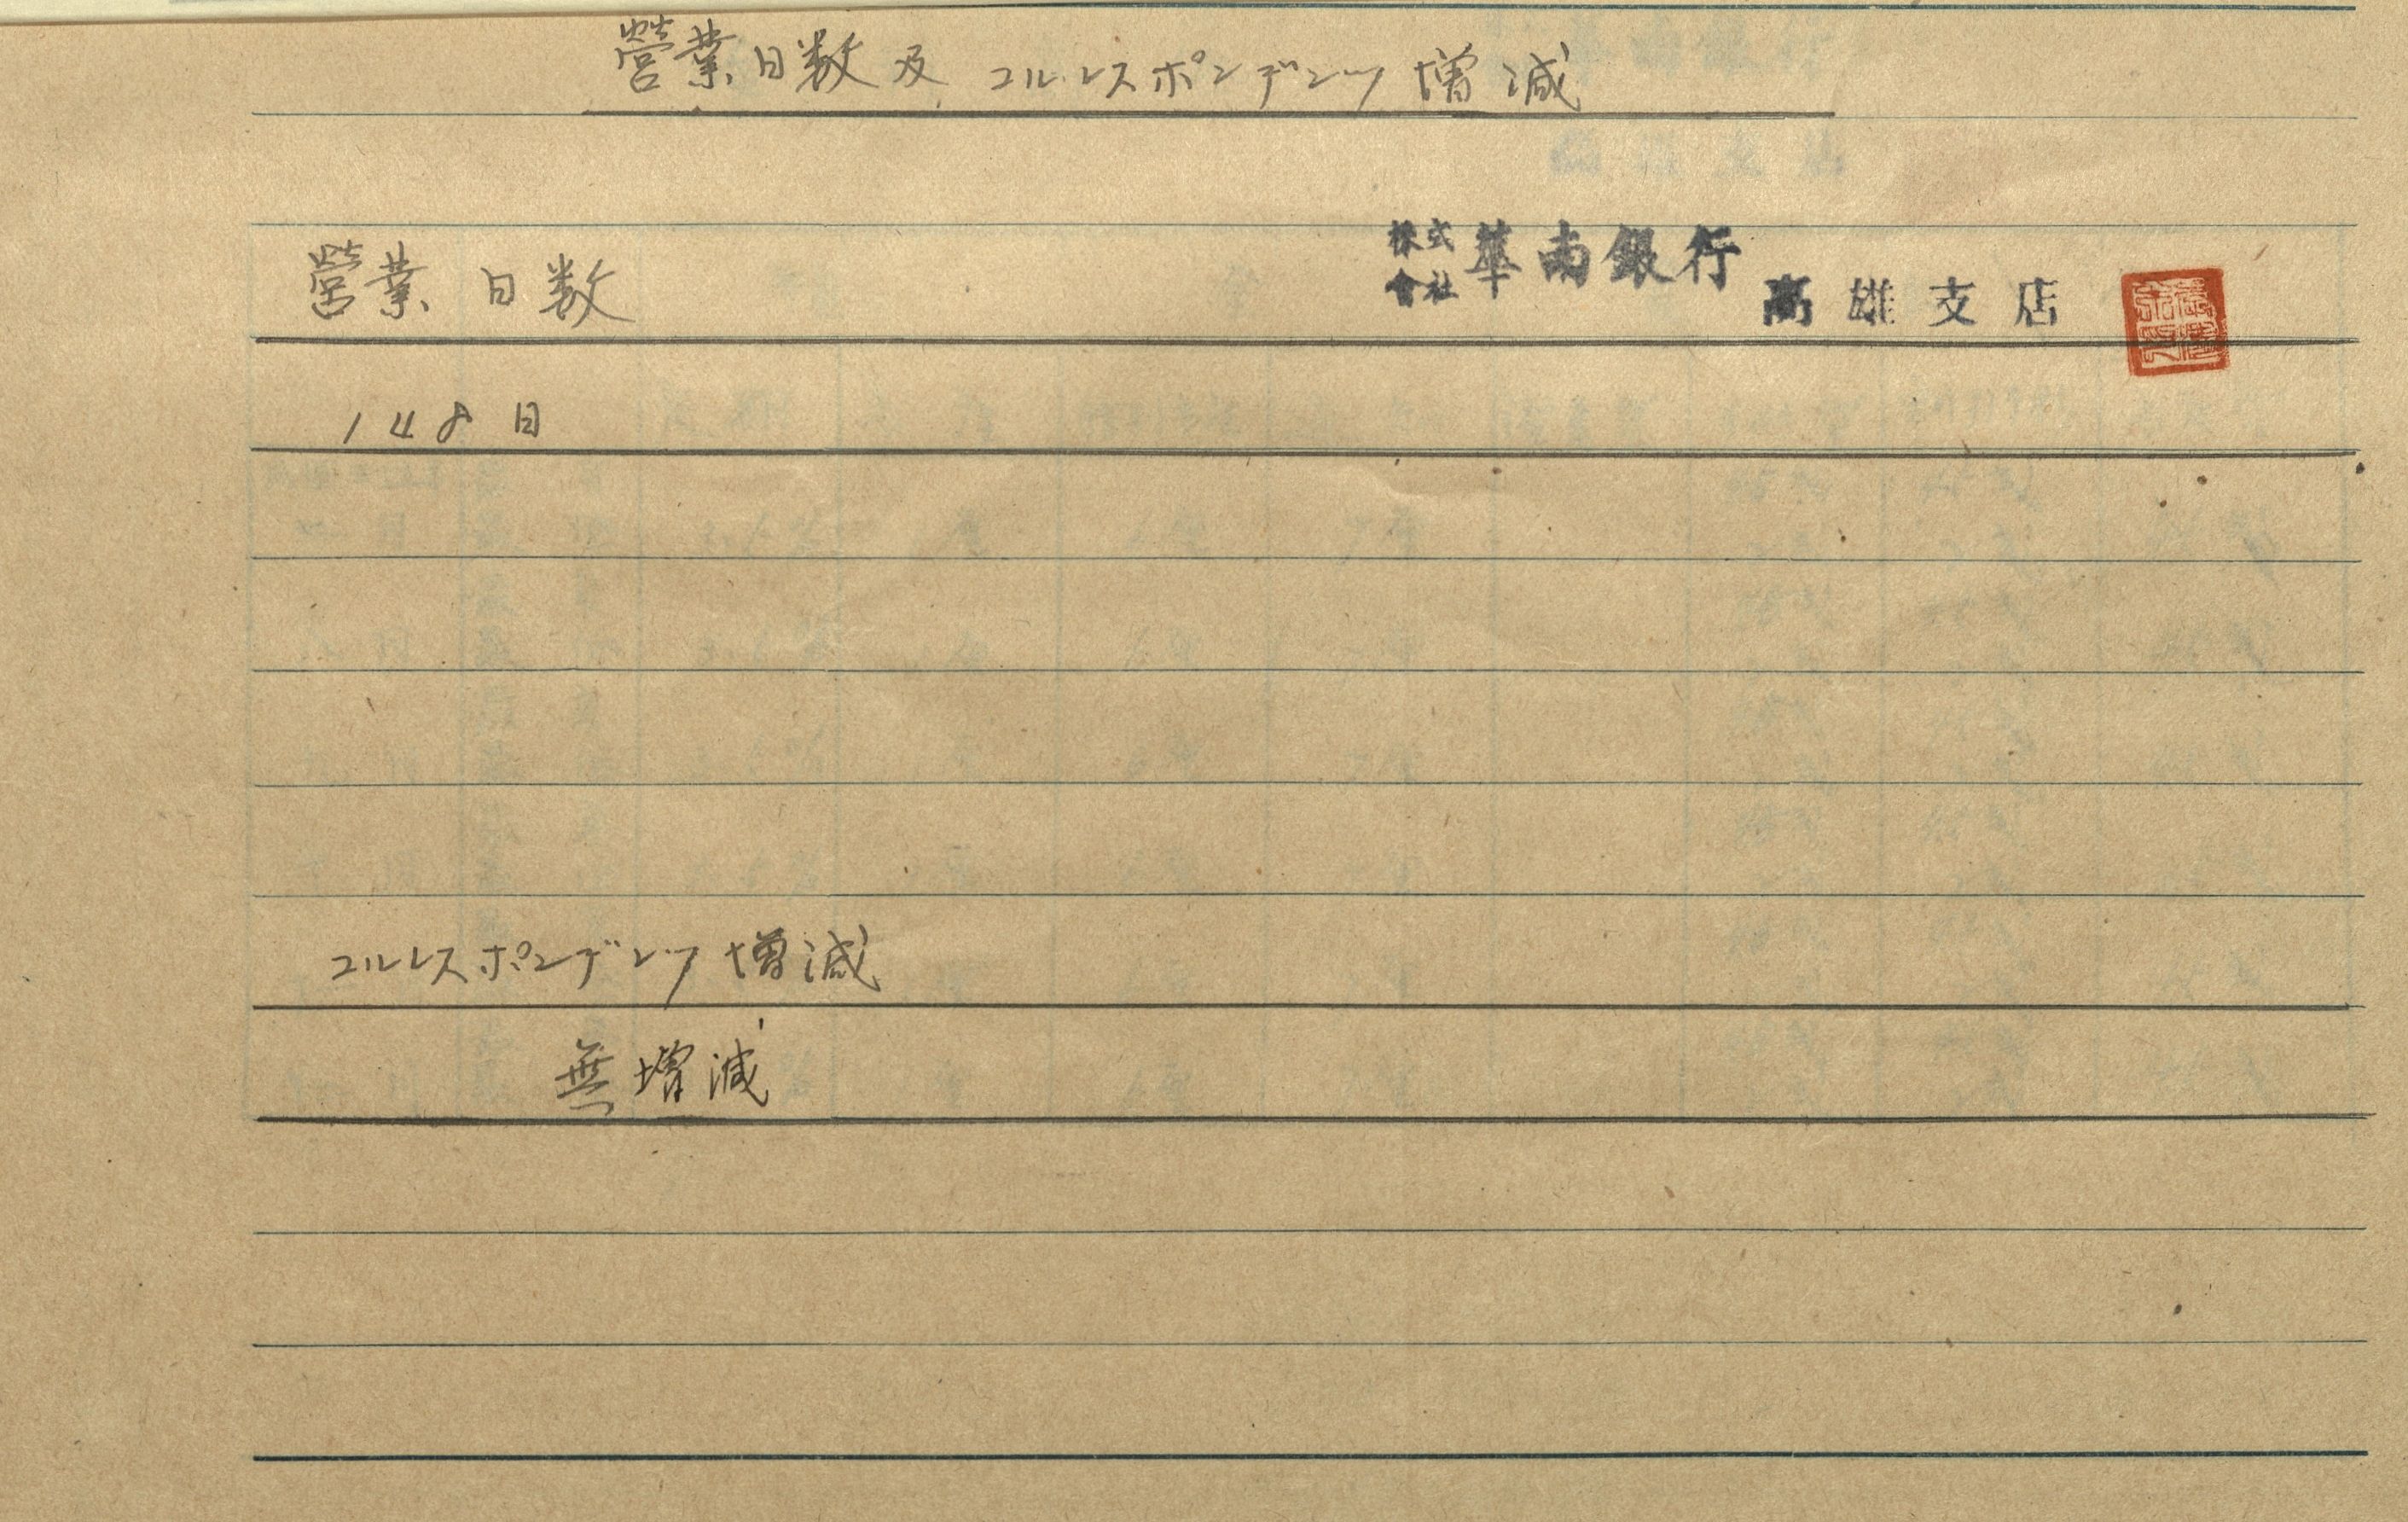 營業日数及コルレスポンデンツ増減
株式會社華南銀行高雄支店
營業日数
148日
コルレスポンデンツ増減
無増減